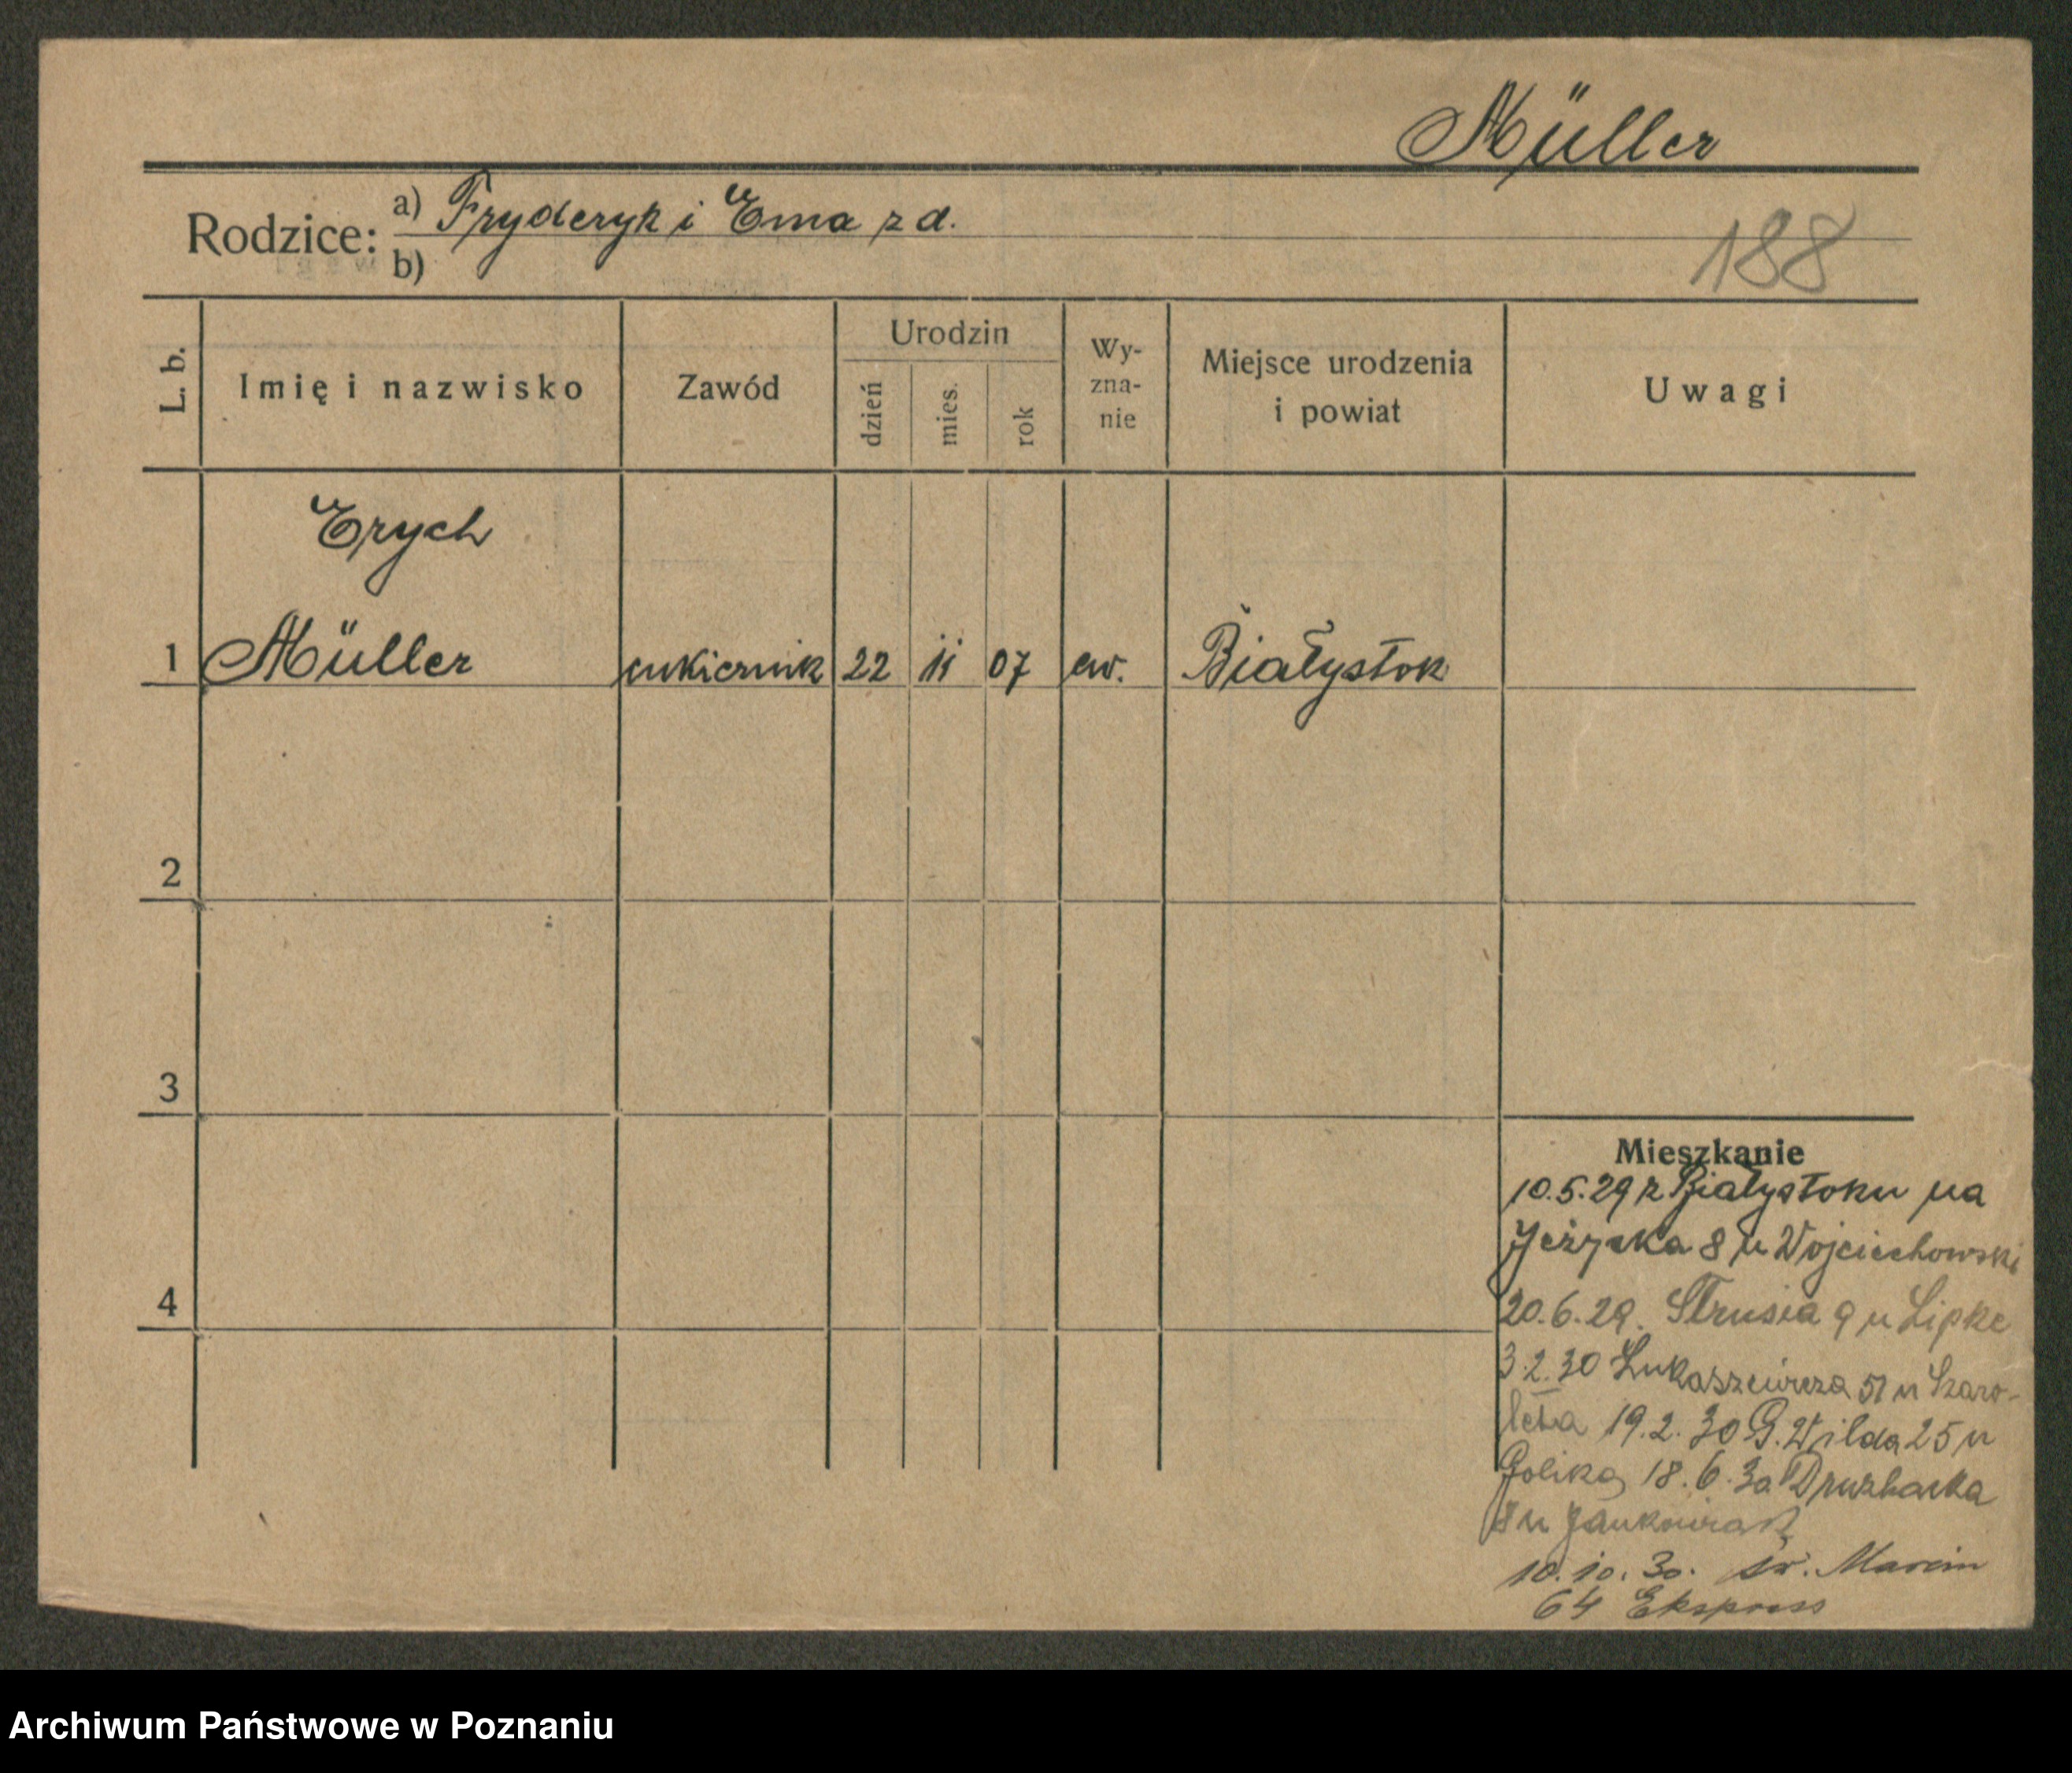 Müller
Rodzice: a) Fryderyk i Ema z d.
b)
188
L. b.
Imię i nazwisko
Zawód
Urodzin
dzień
mies.
rok
Wy-
zna-
nie
Miejsce urodzenia
i powiat
Uwagi
Erych
1 Müller cukiernik 22 11 07 ew. Białystok
2
3
4
Mieszkanie
10.5.29 z Białystoku na
Jeżycka 8 u Wojciechowski
20.6.29. Strusia 9 u Lipke
3.2.30 Łukaszewicza 51 u Szaro-
leta 19.2.30 G. Wilda 25 u
Golika 18.6.30 Druzbacka
8 u Jankowiak
10.10.30. św. Marcin
64 Ekspress
Archiwum Państwowe w Poznaniu